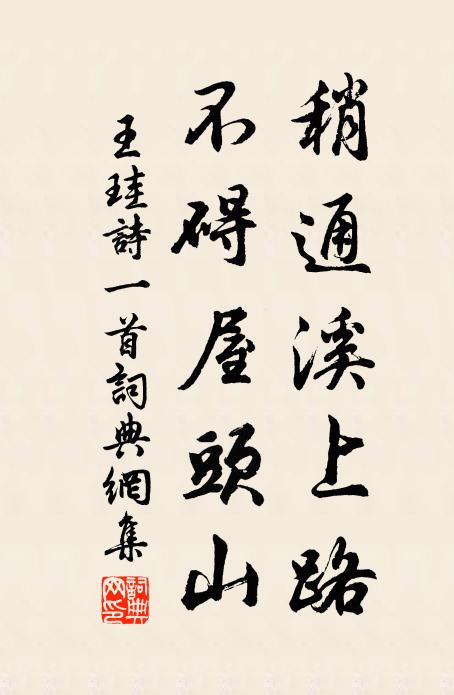 稍通溪上路
不碍屋頭山
王珪詩一首詞典網集
詞典網印